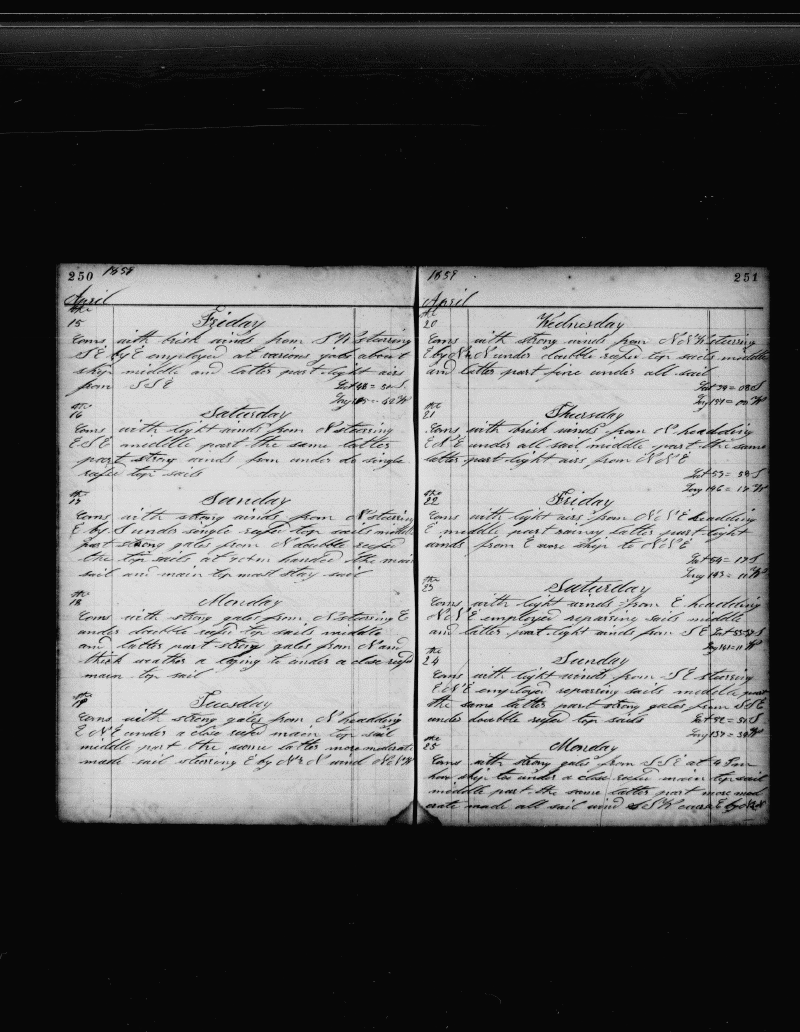 250 1859
April
the
15 Friday
Coms with brisk winds from S W steurring
S E by E employed at various jobs about
ship middle and latter part light airs
from S S E Lat 48 = S
Long = W
the
16 Saturday
Coms with light winds from N steurring
E S E middle part the same latter
part strong winds from under do single
reefed top sails
the
17 Sunday
Coms with strong winds from N steurring
E by S under single reefed top sails middle
part strong gales from N double reefed
the top sails at handed the main
sail and main top mast stay sail
the
18 Monday
Coms with strong gales from N steurring E
under double reefed top sails middle
and latter part strong gales from N and
thick weather a laying to under a close reefed
main top sail
the
19 Tuesday
Coms with strong gales from N headding
E N E under a close reefed main top sail
middle part the same latter more moderate
made sail steurring E by N N wind N N W
1859 251
April
the
20 Wednesday
Coms with strong winds from N N W steurring
E by N N under doubble reefed top sails middle
and latter part fine under all sail
Lat 54 = 08 S
Long 151 = 00 W
the
21 Thursday
Coms with brisk winds from N headding
E N E under all sail middle part the same
latter part light airs from N N E
Lat 53 = 58 S
Long 146 = 17 W
the
22 Friday
Coms with light airs from N N E headding
E middle part rainey latter part light
winds from E wore ship to N N E
Lat 54 = 17 S
Long 143 = 11 W
the
23 Saturday
Coms with light winds from E headding
N N E employed reparring sails middle
and latter part light winds from S E Lat 53=57 S
Long 141=11 W
the
24 Sunday
Coms with light winds from S E steurring
E N E employed reparring sails middle part
the same latter part strong gales from S S E
under doubble reefed top sails Lat 52 = S
Long 139 = W
the
25 Monday
Coms with strong gales from S S E at 4 P m
hove ship to under a close reefed main top sail
middle part the same latter part more mod
erate made all sail wind S S W course E by N N